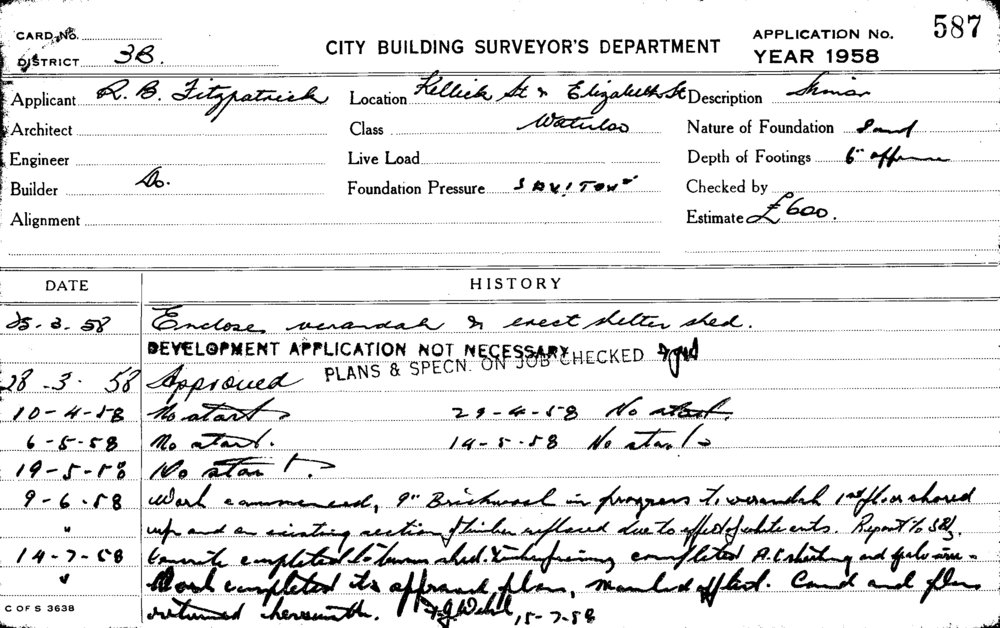 CARD No.
DISTRICT 3B.
CITY BUILDING SURVEYOR'S DEPARTMENT
APPLICATION No. 587
YEAR 1958
Applicant R. B. Fitzpatrick Location Kellick St & Elizabeth St Description Minor
Architect Class Waterloo Nature of Foundation Sand
Engineer Live Load Depth of Footings 6"
Builder Do. Foundation Pressure Checked by
Alignment Estimate £600.
DATE HISTORY
25-3-58 Enclose verandah & erect shelter shed.
DEVELOPMENT APPLICATION NOT NECESSARY
PLANS & SPECN. ON JOB CHECKED
28-3-58 Approved
10-4-58 No start 29-4-58 No start.
6-5-58 No start. 14-5-58 No start
19-5-58 No start.
9-6-58 Work commenced, 9" Brickwork in progress to verandah 1st floor shored
" up and an existing section of timber replaced due to effect of white ants. Report to
14-7-58 completed to shed. completed A.C sheeting and
" Work completed to approved plan, Card and plans
returned herewith. 15-7-58
C OF S 3638